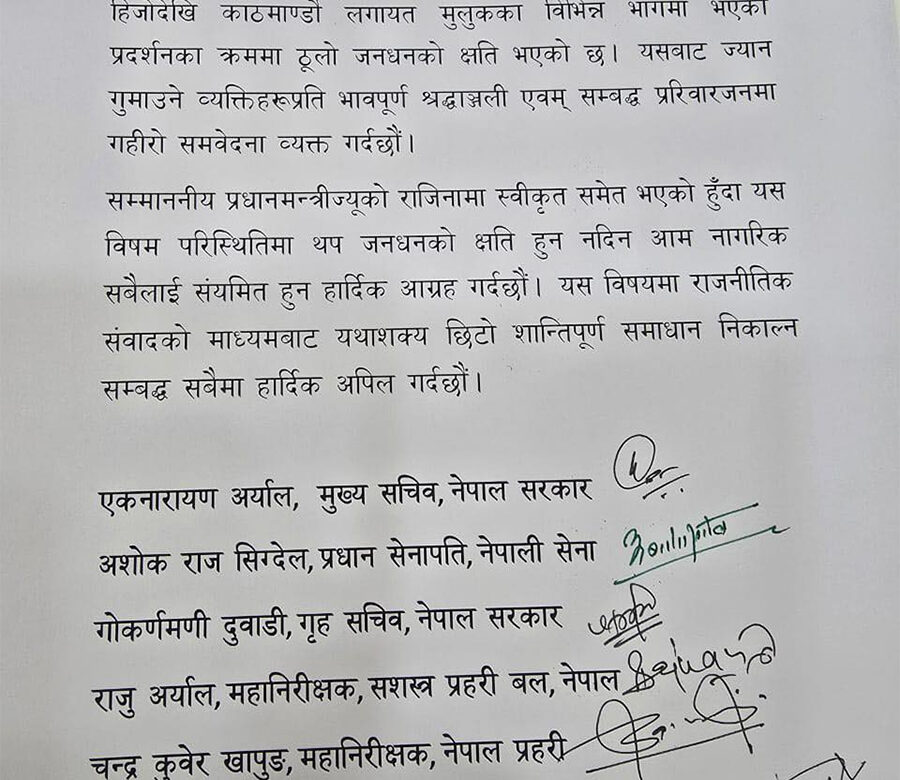 हिजोदेखि काठमाण्डौ लगायत मुलुकका विभिन्न भागमा भएको
प्रदर्शनका क्रममा ठूलो जनधनको क्षति भएको छ। यसबाट ज्यान
गुमाउने व्यक्तिहरूप्रति भावपूर्ण श्रद्धाञ्जली एवम् सम्बद्ध परिवारजनमा
गहीरो समवेदना व्यक्त गर्दछौं।
सम्माननीय प्रधानमन्त्रीज्यूको राजिनामा स्वीकृत समेत भएको हुँदा यस
विषम परिस्थितिमा थप जनधनको क्षति हुन नदिन आम नागरिक
सबैलाई संयमित हुन हार्दिक आग्रह गर्दछौं। यस विषयमा राजनीतिक
संवादको माध्यमबाट यथाशक्य छिटो शान्तिपूर्ण समाधान निकाल्न
सम्बद्ध सबैमा हार्दिक अपिल गर्दछौं।
एकनारायण अर्याल, मुख्य सचिव, नेपाल सरकार
अशोक राज सिग्देल, प्रधान सेनापति, नेपाली सेना
गोकर्णमणी दुवाडी, गृह सचिव, नेपाल सरकार
राजु अर्याल, महानिरीक्षक, सशस्त्र प्रहरी बल, नेपाल
चन्द्र कुवेर खापुङ, महानिरीक्षक, नेपाल प्रहरी